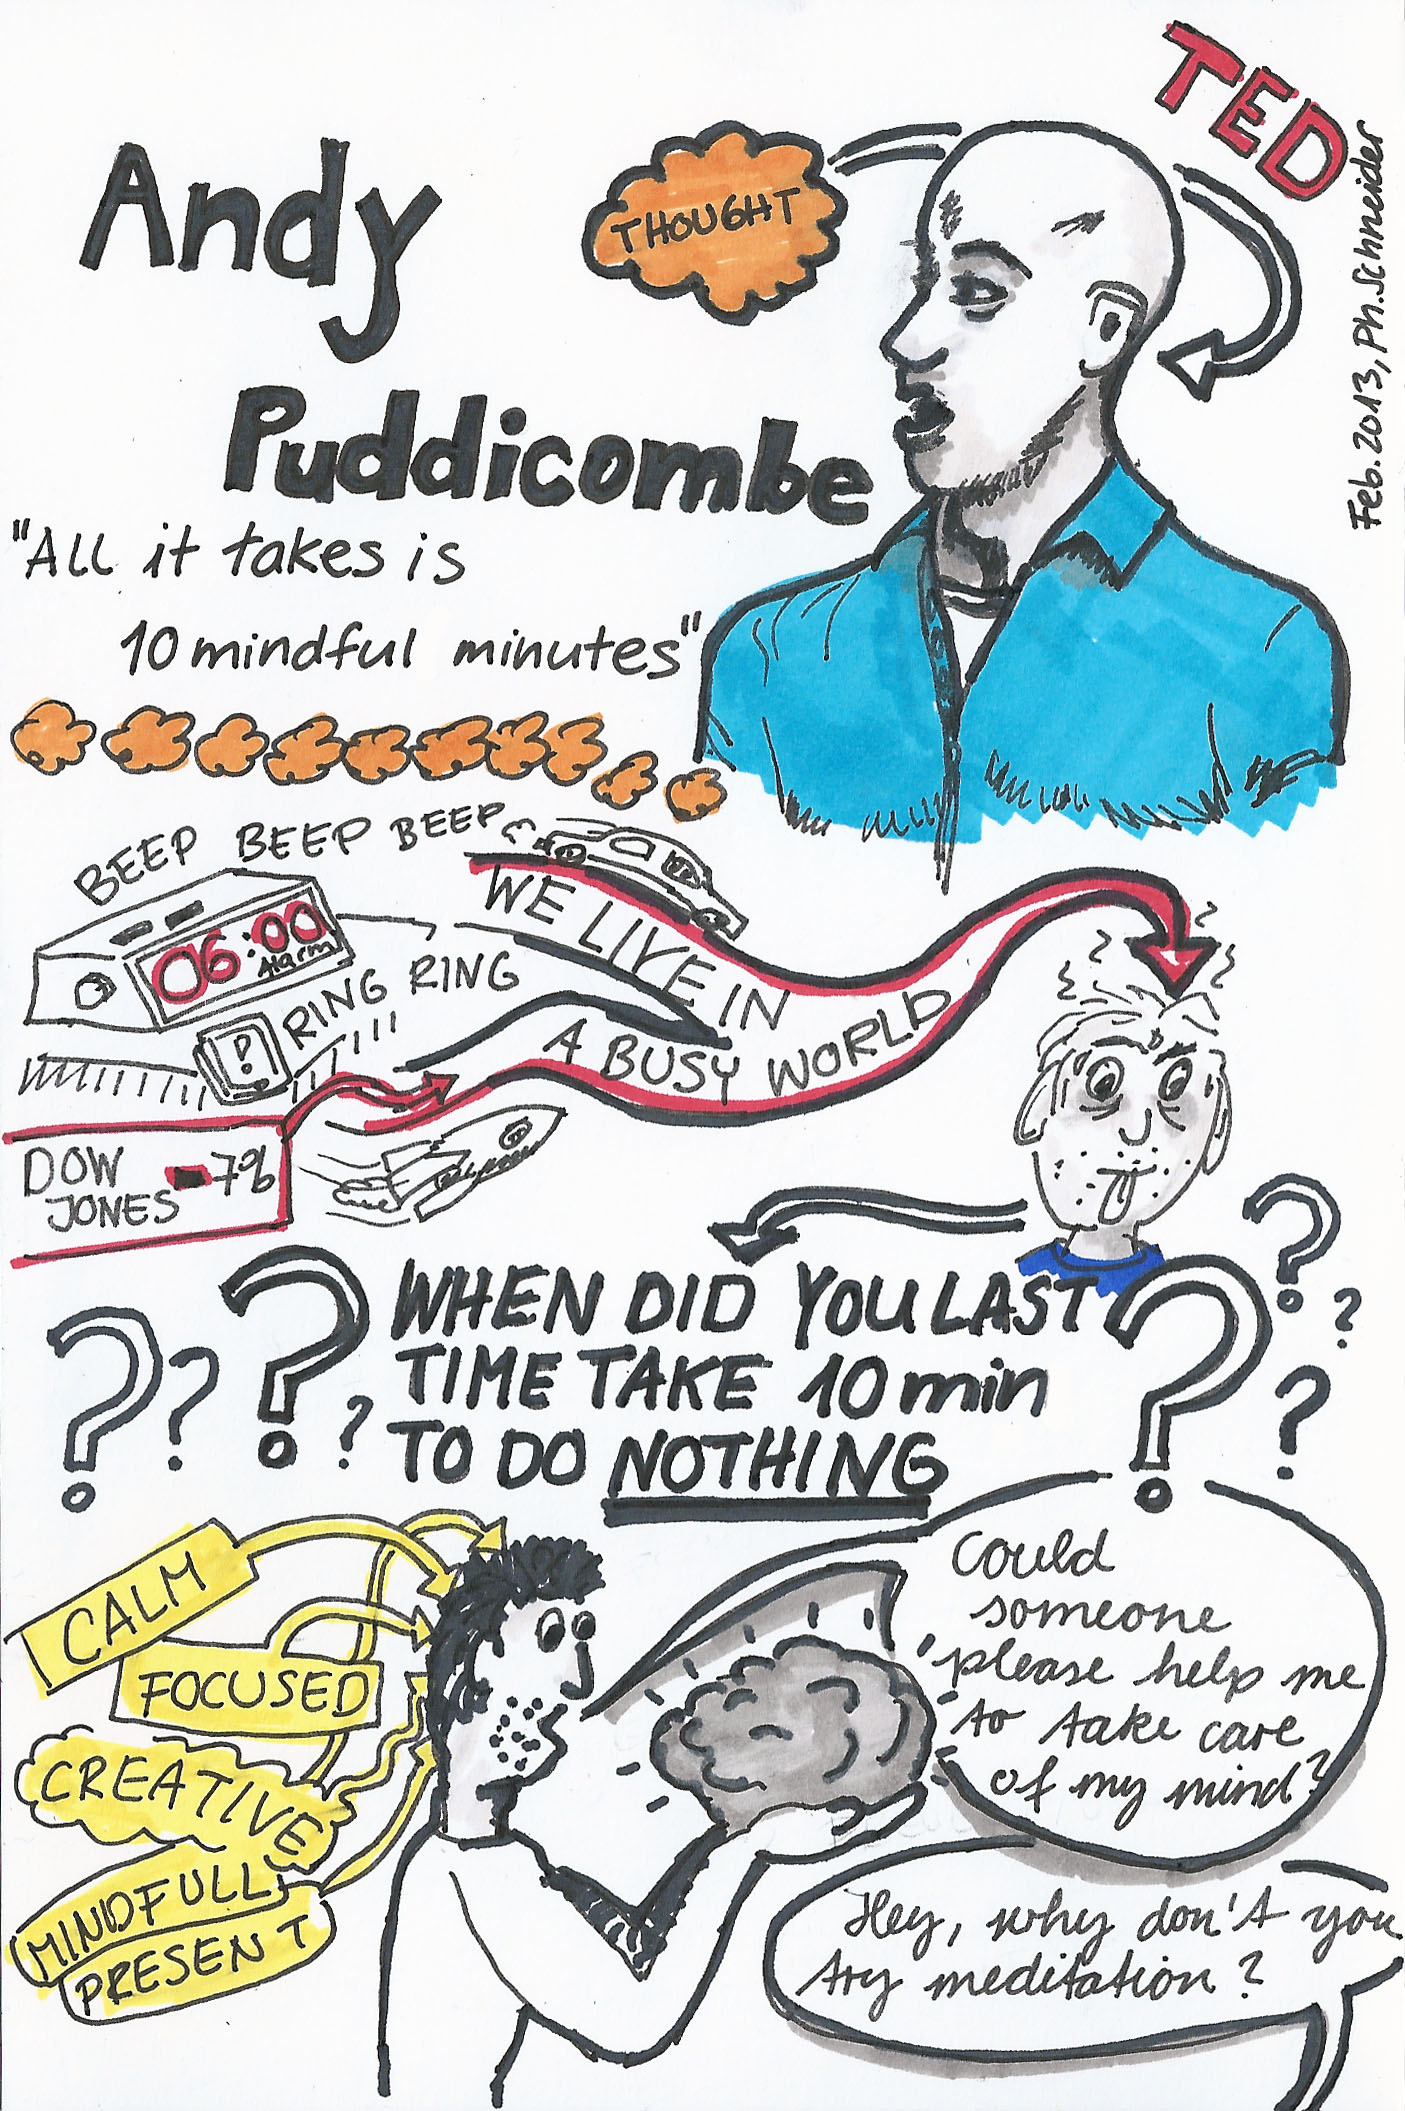 TED
Feb. 2013, Ph. Schneider
Andy
Puddicombe
THOUGHT
"ALL it takes is
10 mindful minutes"
BEEP BEEP BEEP
06:00
Alarm
RING RING
WE LIVE IN
A BUSY WORLD
DOW
JONES -7%
WHEN DID YOU LAST
TIME TAKE 10 min
TO DO NOTHING
?
CALM
FOCUSED
CREATIVE
MINDFULL
PRESENT
Could
someone
please help me
to take care
of my mind?
Hey, why don't you
try meditation?